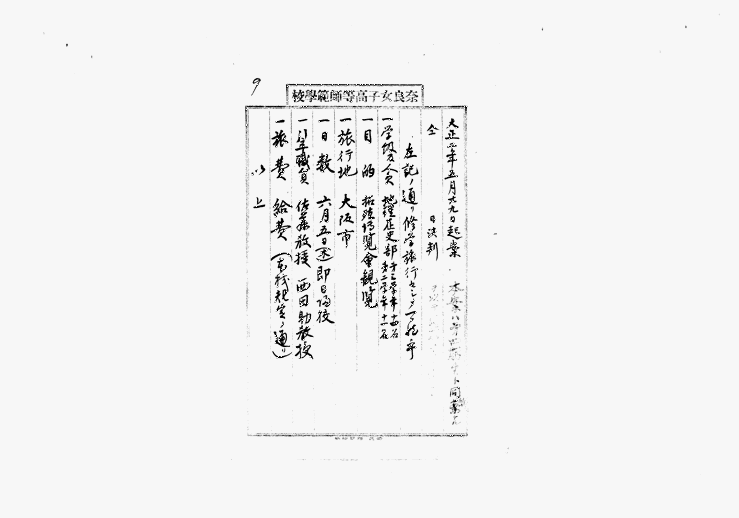 9
奈良女子高等師範學校
大正三年五月廿九日起案
仝　　日決判
左記ノ通リ修学旅行セシメ可然乎
一学級及人員　地理歴史部　第三学年　十四名
第二学年　十一名
一目的　拓殖博覧會観覧
一旅行地　大阪市
一日数　六月五日　即日帰校
一引率職員　佐藤教授　西田助教授
一旅費　給費（本校規定ノ通リ）
以上